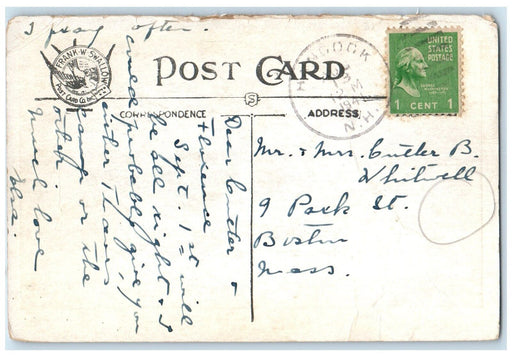 I pray often.
FRANK W. SWALLOW
POST CARD
CORRESPONDENCE
ADDRESS
HANCOCK
N.H.
UNITED
STATES
POSTAGE
1 CENT 1
Dear Cutler &
Florence
Sept. 1st will
be all right & I
could probably give you
either Thurs.
or the
Much love
Mr. & Mrs. Cutler B.
Whitwell
9 Park St.
Boston
Mass.